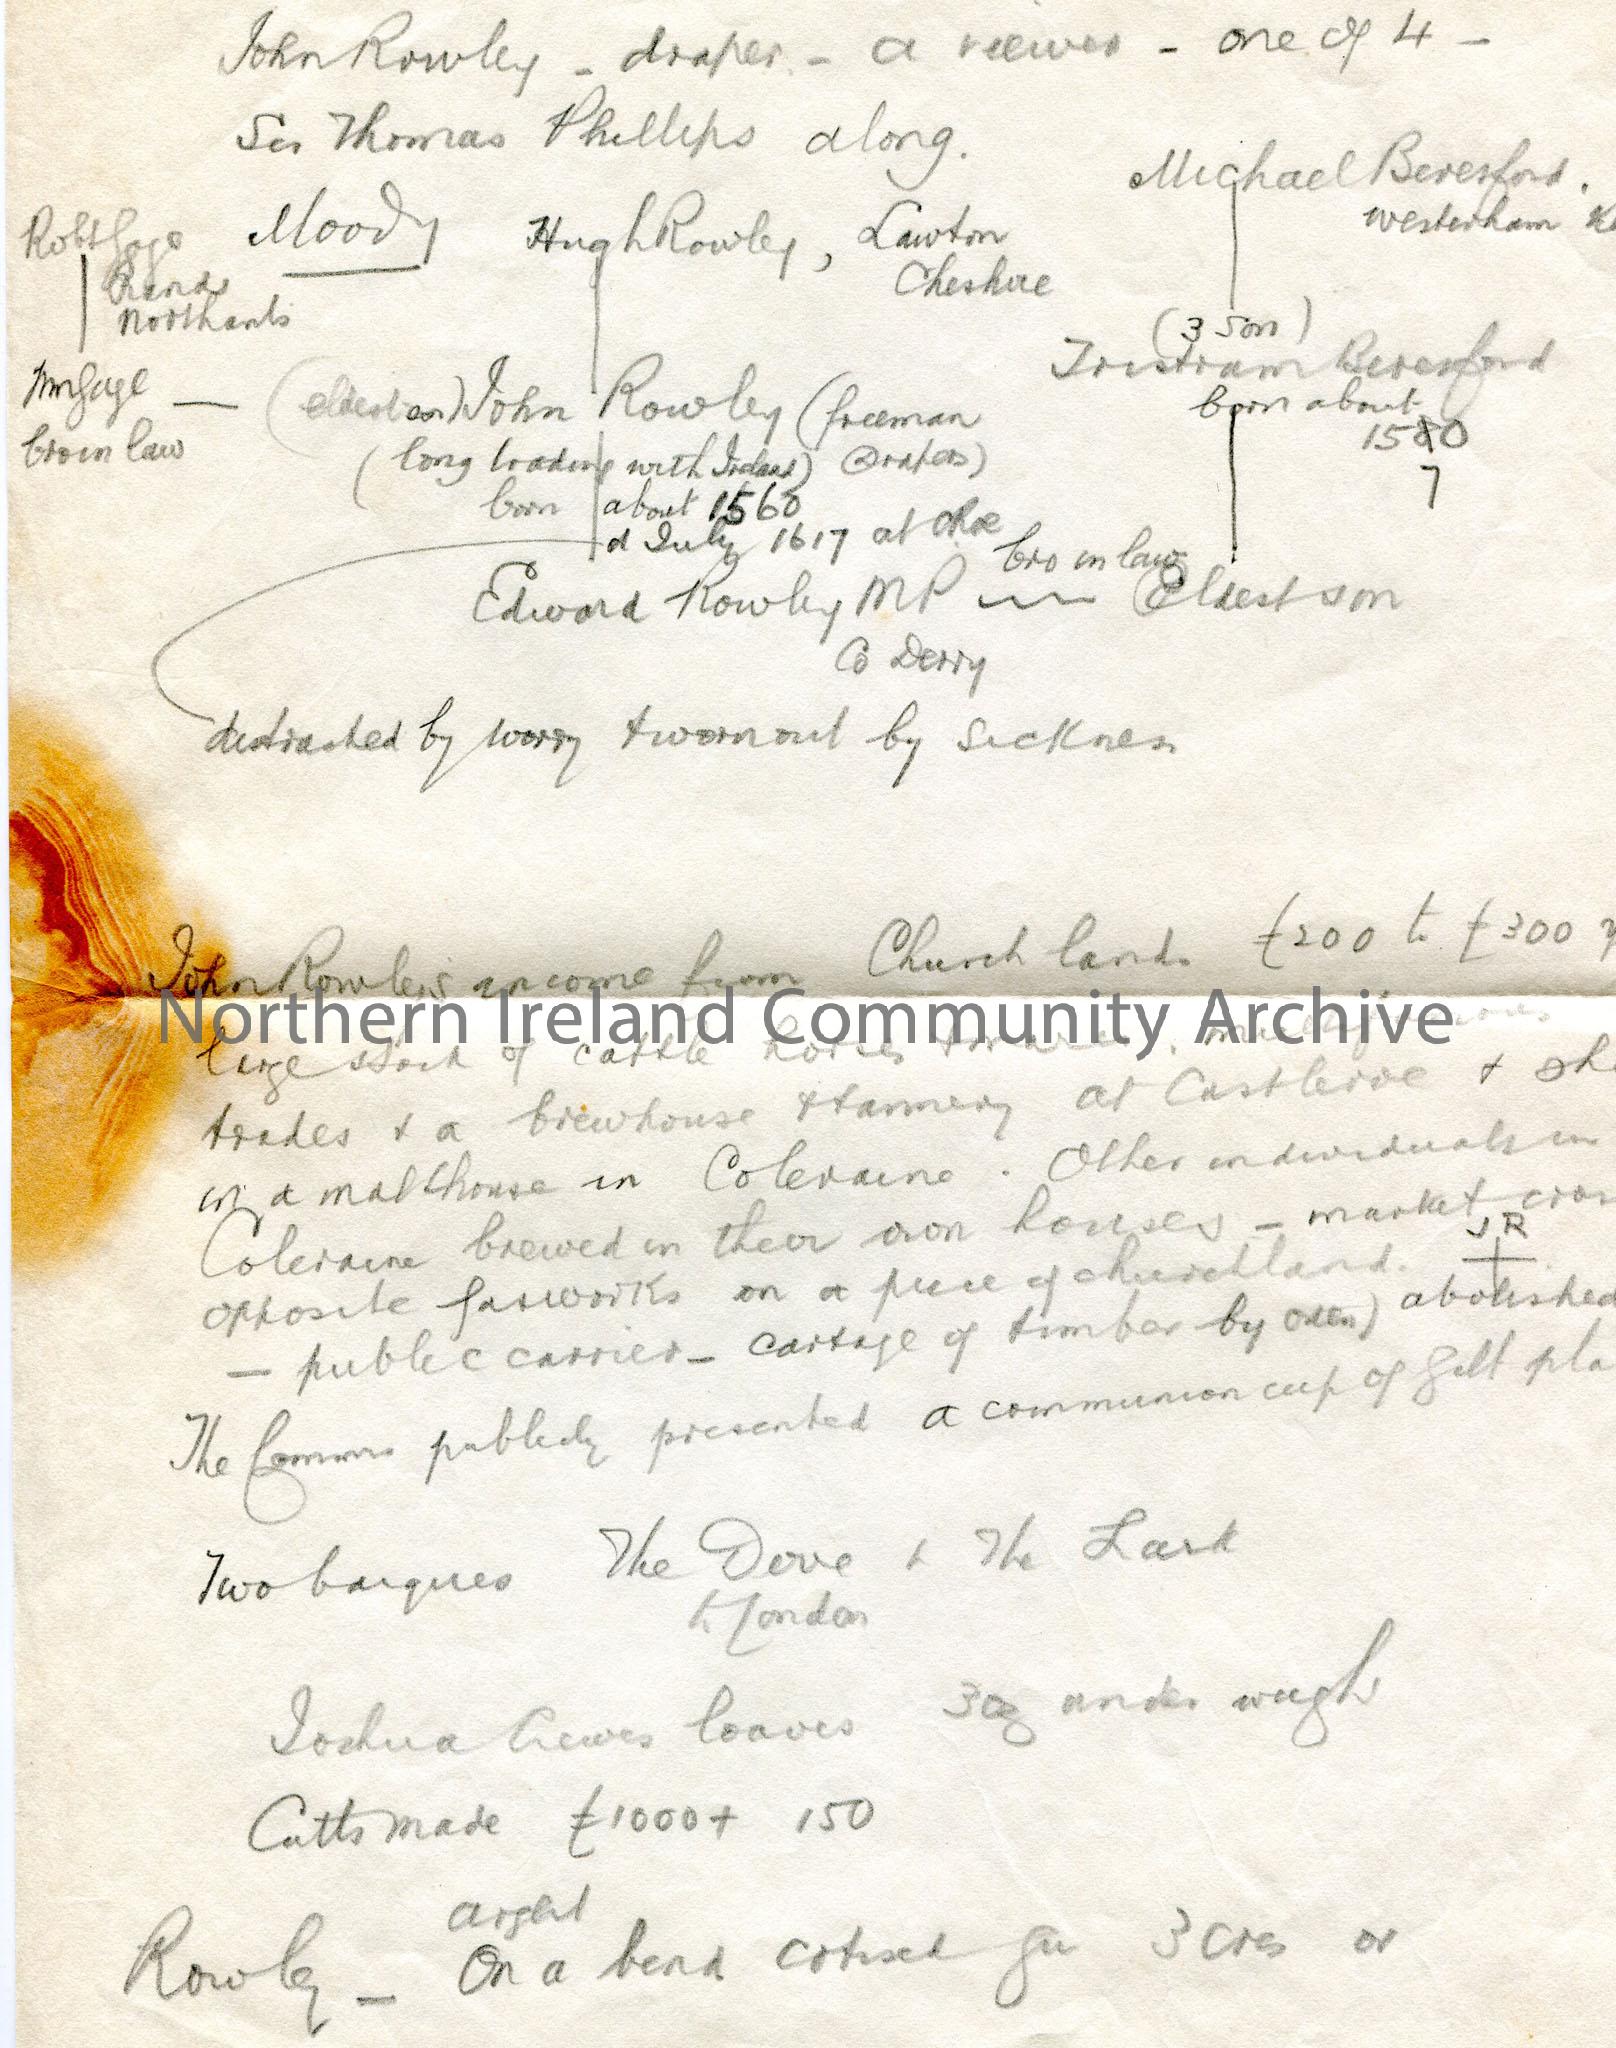 John Rowley - draper - a viewer - one of 4 -
Sir Thomas Phillips along.
Michael Beresford.
Westerham
Robt Gage
Rands
Northants
Moody
Hugh Rowley, Lawton
Cheshire
(3 son)
Tristram Beresford
born about
1580
7
Wm Gage —
bro in law
(eldest son) John Rowley (freeman
(long trading with Ireland) Drapers)
born about 1560
d July 1617 at
Edward Rowley MP
bro in law
Eldest son
Co Derry
distracted by worry & wornout by sickness
John Rowley's income from Church lands £200 to £300
Northern Ireland Community Archive
large stock of cattle horses
trades & a brewhouse & tannery at Castleroe &
in a malthouse in Coleraine. Other individuals in
Coleraine brewed in their own houses - market cross
JR
opposite gasworks on a piece of churchland.
— public carrier - cartage of timber by oxen) abolished
The Comms publicly presented a communion cup of gilt
Two barques The Dove & The Lark
to London
Joshua loaves 3oz under weight
Cutts made £1000 + 150
argent
Rowley — On a bend cotised gu 3 cres or